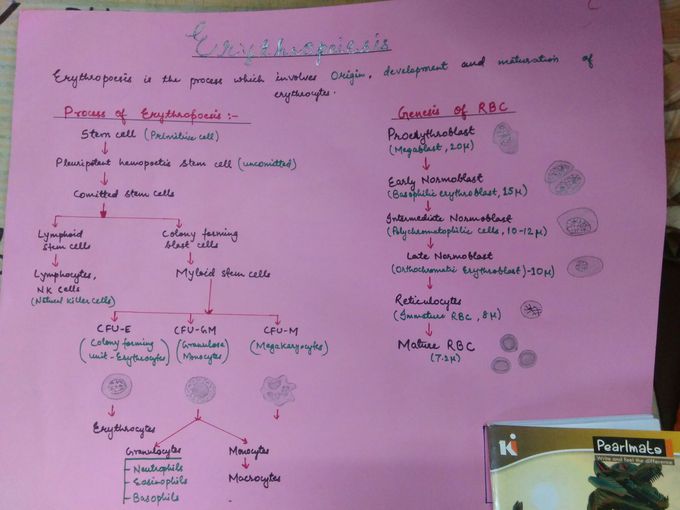 Erythropoiesis
Erythropoesis is the process which involves Origin, development and maturation of
erythrocytes.
Process of Erythropoesis :-
Stem cell (Primitive cell)
Pleuripotent hemopoetic stem cell (uncomitted)
Comitted stem cells
Lymphoid
stem cells
Colony forming
blast cells
Lymphocytes,
NK cells
(Natural killer cells)
Myloid stem cells
CFU-E
(Colony forming
unit-Erythrocytes)
CFU-GM
(Granulose
Monocytes)
CFU-M
(Megakaryocytes)
Erythrocytes
Granulocytes
Neutrophils
Eosinophils
Basophils
Monocytes
Macrocytes
Genesis of RBC
Proerythroblast
(Megablast, 20μ)
Early Normoblast
(Basophilic erythroblast, 15μ)
Intermediate Normoblast
(Polychromatophilic cells, 10-12μ)
Late Normoblast
(Orthochromatic Erythroblast)-10μ
Reticulocytes
(Immature RBC, 8μ)
Mature RBC
(7.2μ)
Pearlmate
Write and feel the difference